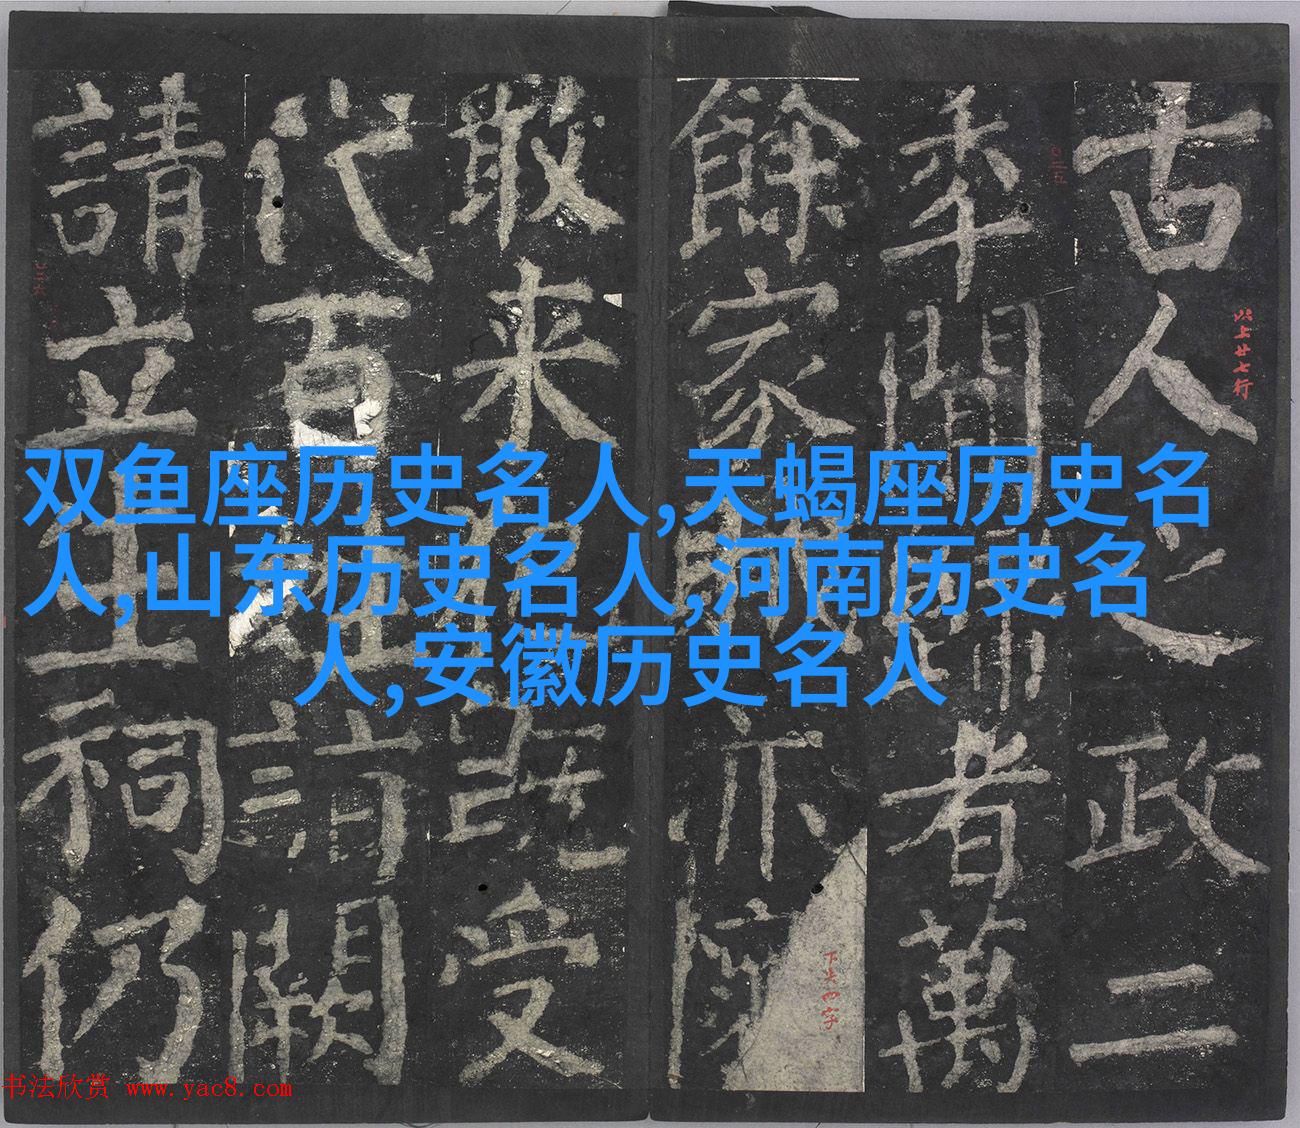 古人之政二
秊閒歸者萬
餘家賦亦
敢来既受
代百姓詣闕
請立生祠仍
以上廿七行
下失四字
双鱼座历史名人,天蝎座历史名
人,山东历史名人,河南历史名
人,安徽历史名人
书法欣赏 www.yac8.com